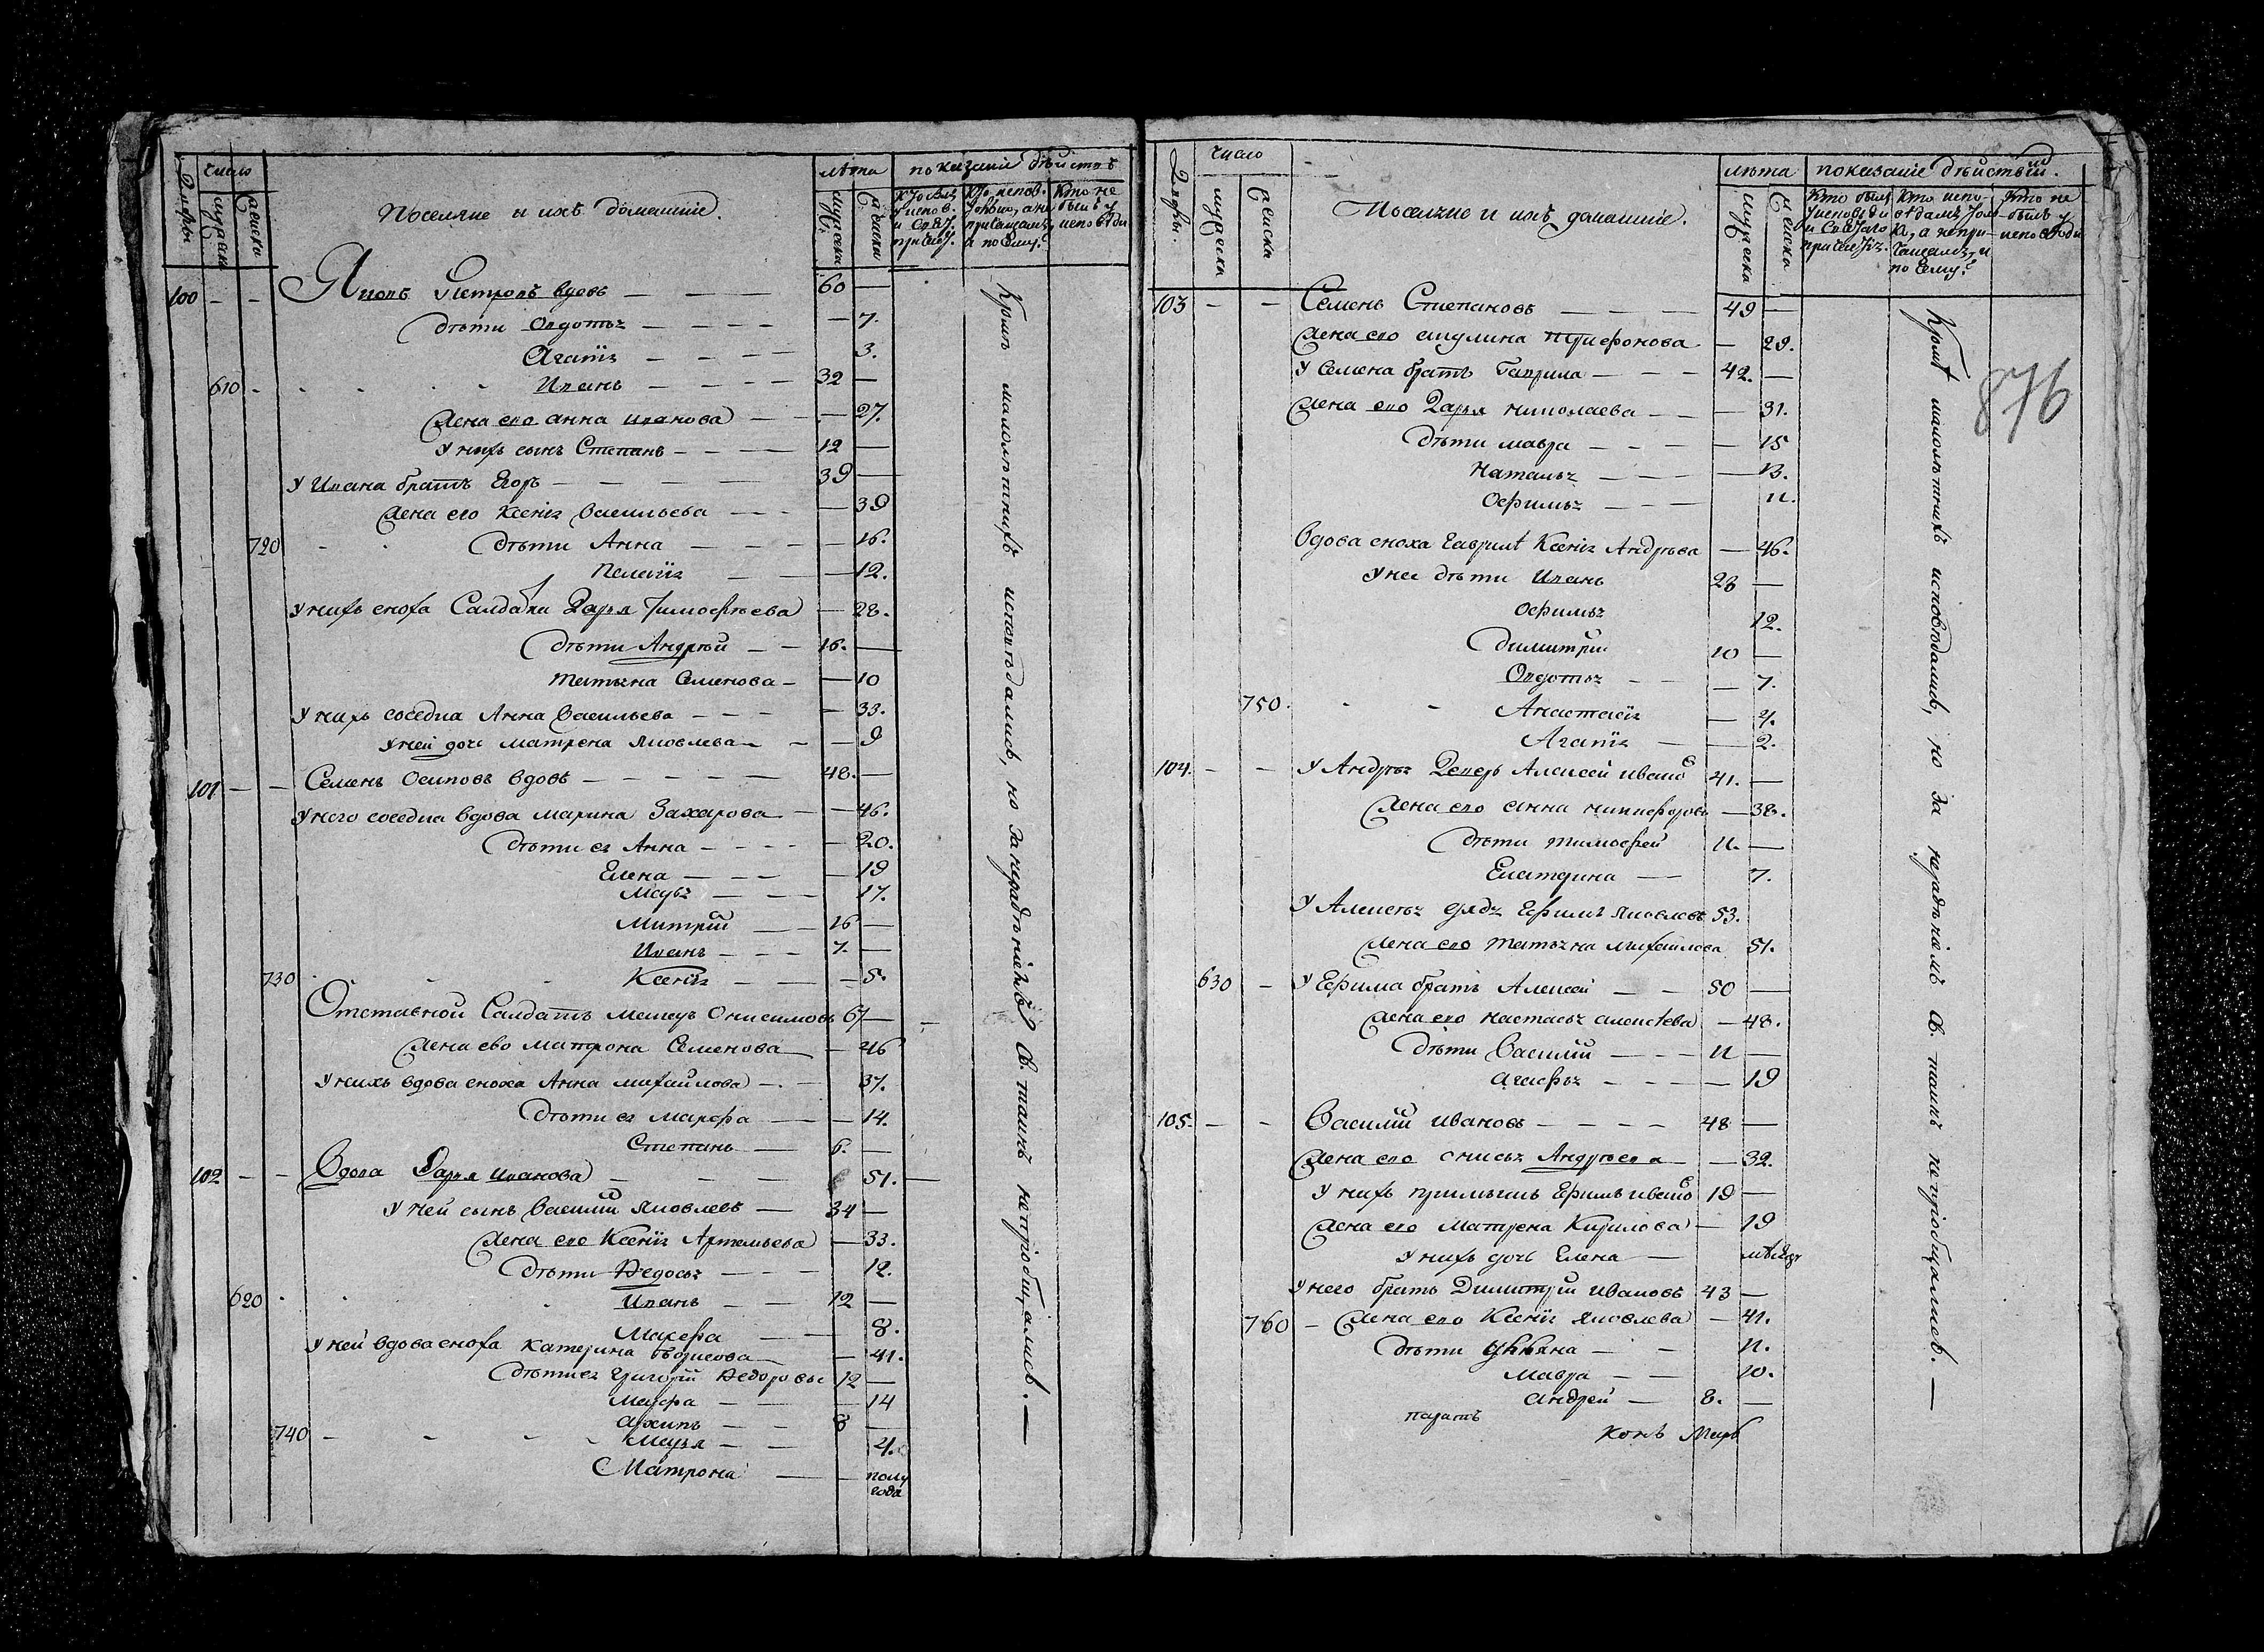 Дворы
число
мужеска
женска
Поселяне и ихъ домашніе.
лѣта
мужеска
женска
показаніе дѣйствъ
Кто былъ у испов. и Свят. причаст.
Кто испов. только, а не причащался, и по чему?
Кто не былъ у исповѣди
100 - - Яковъ Петровъ вдовъ 60
дѣти Овдотья 7.
Агапія 3.
610 - Иванъ 32
Жена его Анна Иванова 27.
У нихъ сынъ Степанъ 12
У Ивана братъ Егоръ 39
Жена его Ксенія Васильева 39
720 Дѣти Анна 16.
Пелагія 12.
У нихъ сноха Салдатки Дарья Тимофѣева 28.
Дѣти Андрѣй 16.
Татьяна Семенова 10
У нихъ соседка Анна Васильева 33.
У ней дочь Матрена Яковлева 9
101 - - Семенъ Осиповъ вдовъ 48.
У него соседка вдова Марина Захарова 46.
Дѣти ея Анна 20.
Елена 19
Марья 17.
Митрій 16
Иванъ 7.
730 Ксенія 5.
Отставной Салдатъ Онисимовъ 67
Жена ево Матрона Семенова 46
У нихъ вдова сноха Анна Михайлова 37.
Дѣти ея Марфа 14.
Степанъ 6.
102 - - Вдова Дарья Иванова 51.
У ней сынъ Василій Яковлевъ 34
Жена его Ксенія Артемьева 33.
Дѣти Федосья 12.
620 Иванъ 12
Марфа 8.
У ней вдова сноха Катерина Борисова 41.
Дѣти ея Григорій Федоровы 12
Марфа 14
Архипъ 8
740 Марья 4.
Матрона полу года
Кромѣ малолѣтнихъ исповѣдались, но за нерадѣніемъ св. таинъ не пріобщались.
Дворы.
число
мужеска
женска
Поселяне и ихъ домашніе.
лѣта
мужеска
женска
показаніе дѣйствій.
Кто былъ у исповѣди и Святаго причастія.
Кто исповѣдался только, а не причащался, и по чему?
Кто не былъ у исповѣди
876
103 - - Семенъ Степановъ 49
Жена его Акулина 29.
У Семена братъ Гаврила 42.
Жена его Дарья Николаева 31.
Дѣти Мавра 15
Наталья 13.
Офимья 11.
Вдова сноха Гаврилѣ Ксенія Андрѣва 46.
У нее дѣти Иванъ 23
Офимья 12.
Димитрий 10
Овдотья 7.
750. Анастасія 4.
Агапія 2.
104. - - У Андрѣя Алексей Ивановъ 41.
Жена его Анна Никифорова 38.
Дѣти Тимофей 11.
Екатерина 7.
У Алексѣя дядя Ефимъ Яковлевъ 53.
Жена его Татьяна Михайлова 51.
630 - У Ефима братъ Алексей 50
Жена его Настасья Алексѣева 48.
Дѣти Василій 11
Агафья 19
105. - - Василій Ивановъ 48
Жена его Онисья Андрѣева 32.
У нихъ Ефимъ Ивановъ 19
Жена его Матрена Кирилова 19
У нихъ дочь Елена
У него братъ Димитрій Ивановъ 43
760 - Жена его Ксенія Яковлева 41.
Дѣти Ульяна 11.
Мавра 10.
Андрей 8.
Кромѣ малолѣтнихъ исповѣдались, но за нерадѣніемъ св. таинъ не пріобщались.